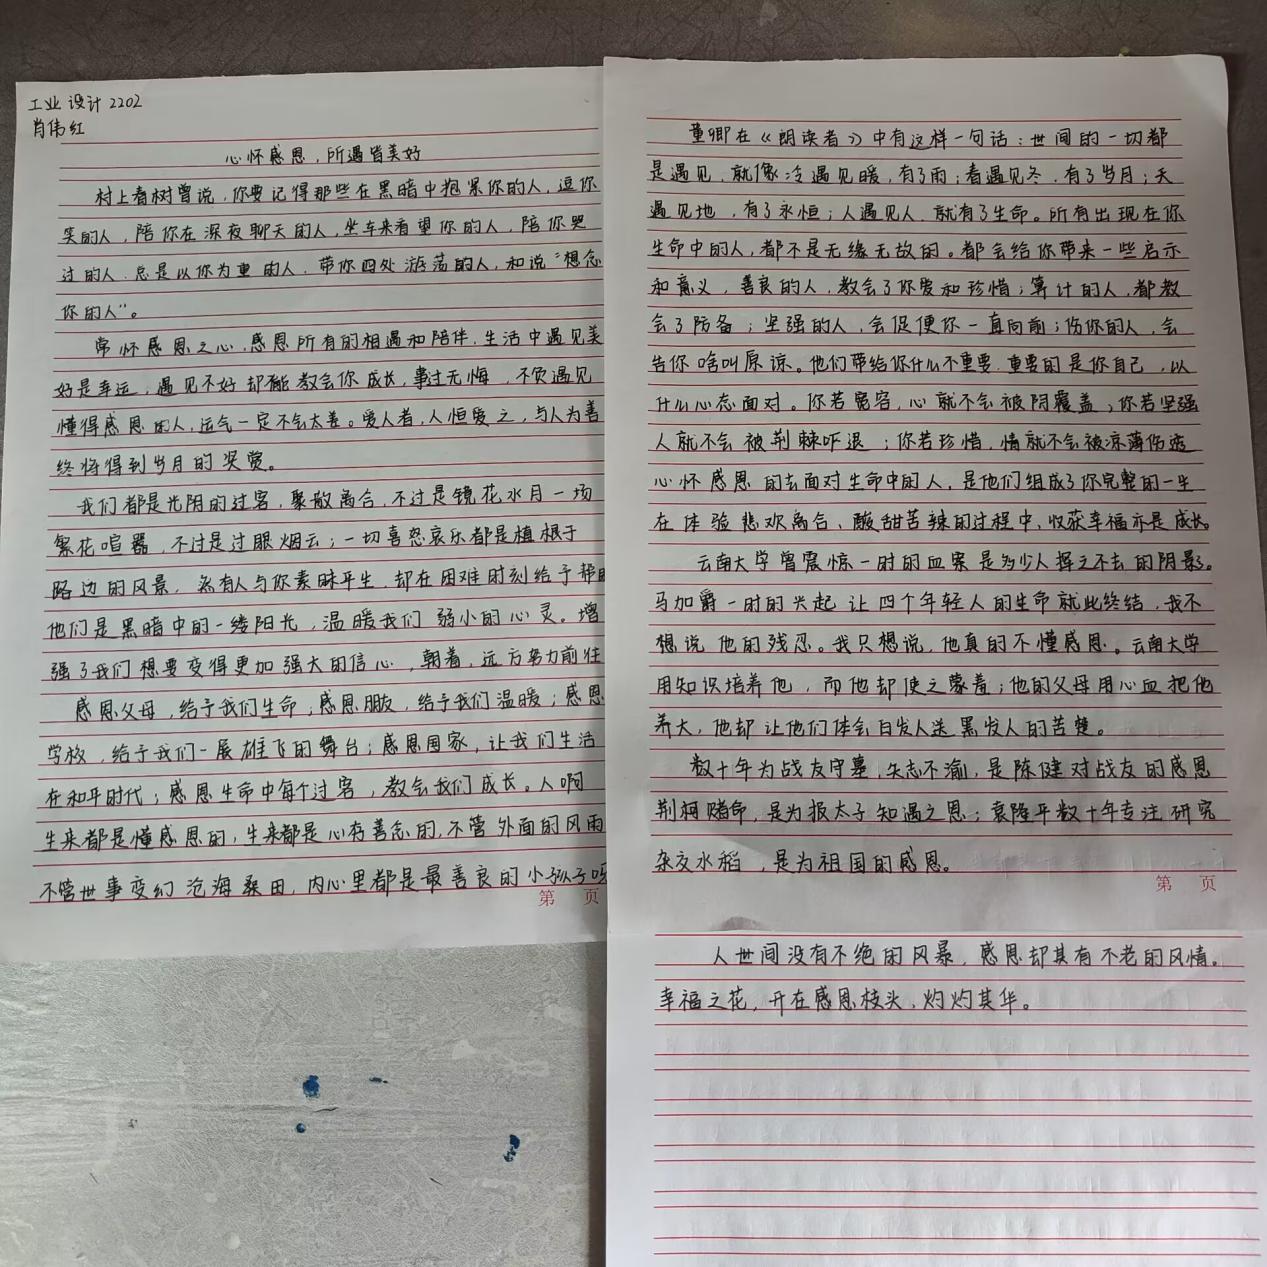 工业设计2202
肖伟红
心怀感恩，所遇皆美好
村上春树曾说，你要记得那些在黑暗中抱紧你的人，逗你
笑的人，陪你在深夜聊天的人，坐车来看望你的人，陪你哭
过的人，总是以你为重的人，带你四处游荡的人，和说“想念
你的人”。
常怀感恩之心，感恩所有的相遇和陪伴，生活中遇见美
好是幸运，遇见不好却能教会你成长，事过无悔，不负遇见
懂得感恩的人，运气一定不会太差。爱人者，人恒爱之，与人为善
终将得到岁月的奖赏。
我们都是光阴的过客，聚散离合，不过是镜花水月一场
繁花喧嚣，不过是过眼烟云；一切喜怒哀乐都是植根于
路边的风景，然有人与你素昧平生，却在困难时刻给予帮助
他们是黑暗中的一缕阳光，温暖我们弱小的心灵。增
强了我们想要变得更加强大的信心，朝着，远方努力前往
感恩父母，给予我们生命，感恩朋友，给予我们温暖；感恩
学校，给于我们一展雄飞的舞台；感恩国家，让我们生活
在和平时代；感恩生命中每个过客，教会我们成长。人啊
生来都是懂感恩的，生来都是心存善念的，不管外面的风雨
不管世事变幻沧海桑田，内心里都是最善良的小孩子吧
第 页
董卿在《朗读者》中有这样一句话：世间的一切都
是遇见，就像冷遇见暖，有了雨；春遇见冬，有了岁月；天
遇见地，有了永恒；人遇见人，就有了生命。所有出现在你
生命中的人，都不是无缘无故的。都会给你带来一些启示
和意义，善良的人，教会了你爱和珍惜；算计的人，都教
会了防备；坚强的人，会促使你一直向前；伤你的人，会
告你啥叫原谅。他们带给你什么不重要，重要的是你自己，以
什么心态面对。你若宽容，心就不会被阴霾盖，你若坚强
人就不会被荆棘吓退；你若珍惜，情就不会被凉薄伤透
心怀感恩的去面对生命中的人，是他们组成了你完整的一生
在体验悲欢离合、酸甜苦辣的过程中，收获幸福亦是成长。
云南大学曾震惊一时的血案是多少人挥之不去的阴影。
马加爵一时的兴起让四个年轻人的生命就此终结，我不
想说他的残忍。我只想说，他真的不懂感恩。云南大学
用知识培养他，而他却使之蒙羞；他的父母用心血把他
养大，他却让他们体会白发人送黑发人的苦楚。
数十年为战友守墓，矢志不渝，是陈健对战友的感恩
荆柯赌命，是为报太子知遇之恩；袁隆平数十年专注研究
杂交水稻，是为祖国的感恩。
第 页
人世间没有不绝的风暴，感恩却具有不老的风情。
幸福之花，开在感恩枝头，灼灼其华。